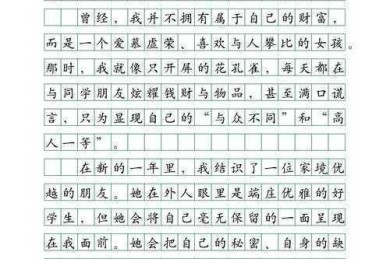 曾经，我并不拥有属于自己的财富，
而是一个爱慕虚荣、喜欢与人攀比的女孩。
那时，我就像只开屏的花孔雀，每天都在
与同学朋友炫耀钱财与物品，甚至满口谎
言，只为显现自己的“与众不同”和“高
人一等”。
在新的一年里，我结识了一位家境优
越的朋友。她在外人眼里是端庄优雅的好
学生，但她会将自己毫无保留的一面呈现
在我面前。她会把自己的秘密、自身的缺